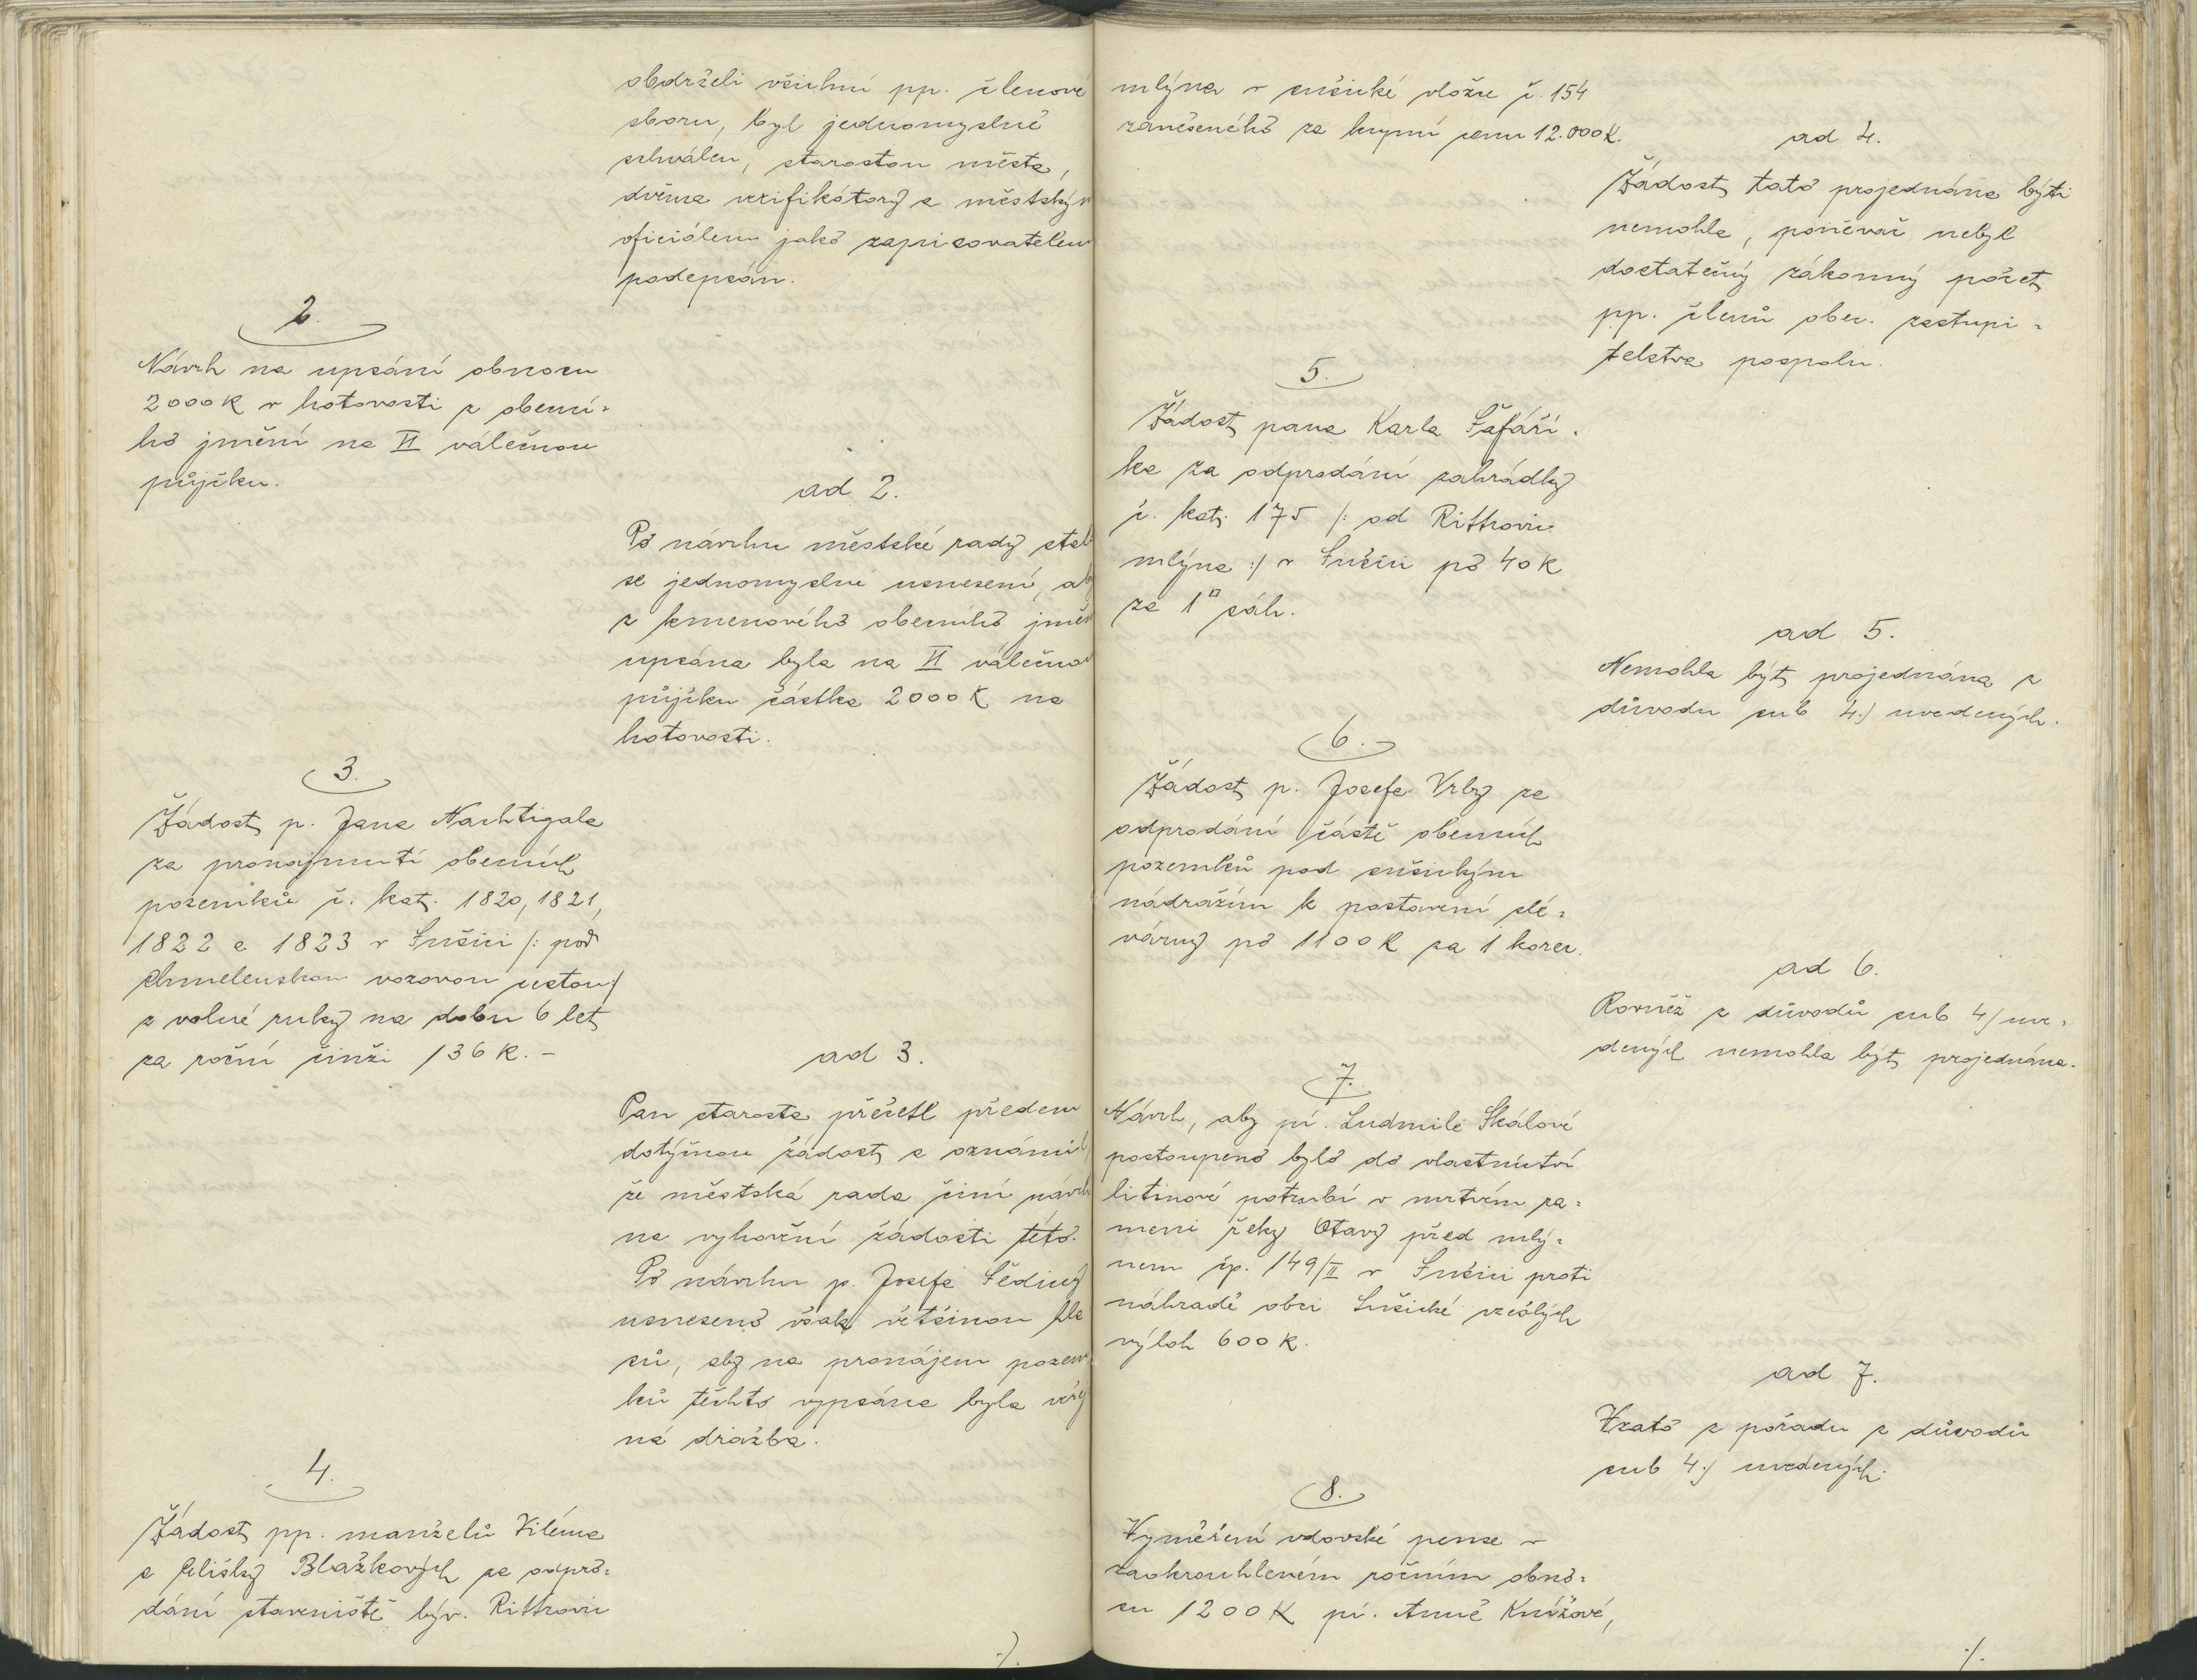 obdrželi všichni pp. členové
sboru, byl jednomyslně
schválen, starostou města,
dvěma verifikátory a městským
oficiálem jako zapisovatelem
podepsán.
2.
Návrh na upsání obnosu
2000 K v hotovosti z obecní-
ho jmění na VI válečnou
půjčku.
ad 2.
Po návrhu městské rady stal
se jednomyslné usnesení, aby
z kmenového obecního jmění
upsána byla na VI válečnou
půjčku částka 2000 K na
hotovosti.
3.
Žádost p. Jana Nachtigala
za pronajmutí obecních
pozemků č. kat. 1820, 1821,
1822 a 1823 v Sušici /: pod
chmelenskou vozovou cestou :/
z volné ruky na dobu 6 let
za roční činži 136 K. –
ad 3.
Pan starosta přečetl předem
dotýčnou žádost a oznámil,
že městská rada činí návrh
na vyhovění žádosti této.
Po návrhu p. Josefa Šediný
usneseno však většinou hla
sů, aby na pronájem pozem
ků těchto vypsána byla veřej
ná dražba.
4.
Žádost pp. manželů Viléma
a Elišky Blažkových za odpro-
dání staveniště býv. Rittrovic
./.
mlýna v sušické vložce č. 154
zaneseného za kupní cenu 12.000 K.
ad 4.
Žádost tato projednána býti
nemohla, poněvač nebyl
dostatečný zákonný počet
pp. členů obec. zastupi-
telstva pospolu.
5.
Žádost pana Karla Šafaří-
ka za odprodání zahrádky
č. kat. 175 /: od Rittrovic
mlýna :/ v Sušici po 40 K
za 1 □ sáh.
ad 5.
Nemohla být projednána z
důvodu sub 4./ uvedených.
6.
Žádost p. Josefa Vrby za
odprodání částě obecních
pozemků pod sušickým
nádražím k postavení slé-
várny po 1100 K za 1 korec.
ad 6.
Rovněž z důvodů sub 4/ uve-
dených nemohla být projednána.
7.
Návrh, aby pí. Ludmile Skálové
postoupeno bylo do vlastnictví
litinové potrubí v mrtvém ra-
meni řeky Otavy před mlý-
nem čp. 149/II v Sušici proti
náhradě obci Sušické vzešlých
výloh 600 K.
ad 7.
Vzato z pořadu z důvodů
sub 4./ uvedených.
8.
Vyměření vdovské pense v
zaokrouhleném ročním obno-
su 1200 K pí. Anně Knížové,
./.